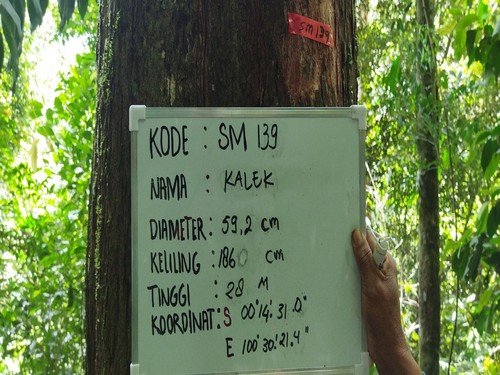 SM 139
KODE : SM 139
NAMA : KALEK
DIAMETER : 59,2 cm
KELILING : 1860 cm
TINGGI : 28 M
KOORDINAT : S 00°14'31.0"
E 100°30'21.4"